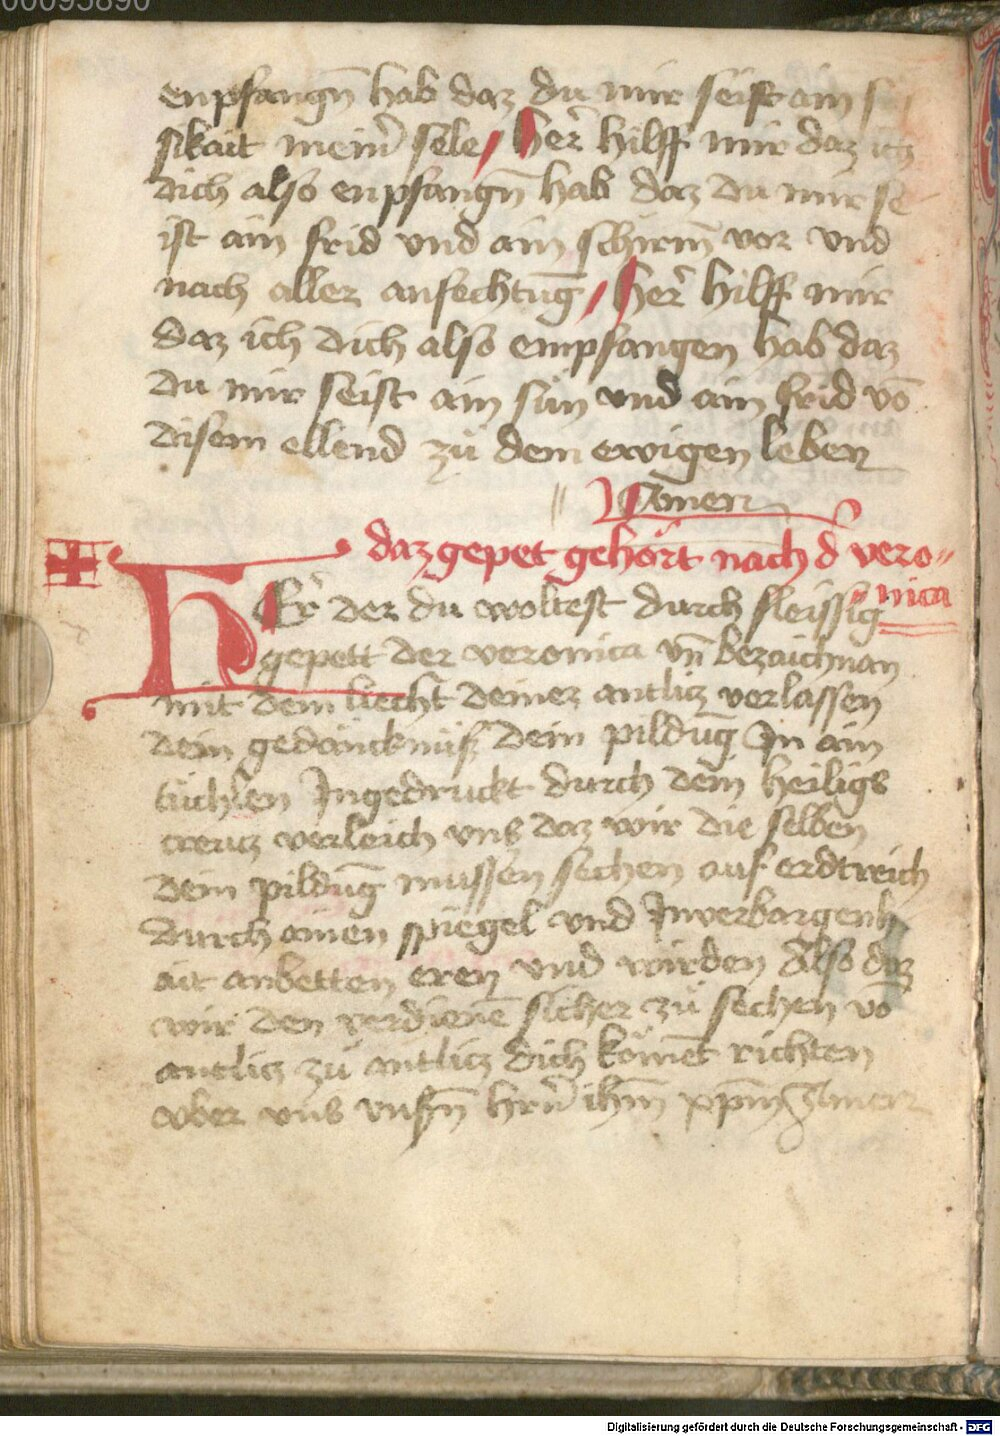 00095890
enpfangn̄ hab daz du mir seist ain
sikait mein̄ sele / her̄ hilff mir daz ich
dich also enpfangn̄ hab daz du mir se
ist ain frid vnd ain schirm̄ vor vnd
nach aller anfechtūg / her̄ hilff mir
daz ich dich also empfangen hab daz
du mir seist ain sün vnd ain frid vō
disem ellend zů dem ewigen leben
Amen
daz gepet gehört nach d̄ vero-
nica
HEr̄ der du woltest durch fleissig
gepett der veronica vn̄ bezaichnan
mit dem liecht deinez antlicz verlassen
dein gedäncknüß dein pildūg In ain
tüchlen Ingedruckt durch dein heiligs
creucz verleich vns daz wir die selben
dein pildūg mussen sechen auf erdtreich
durch ainen spiegel vnd Inverbargenh
ait anbetten eren vnd wirden Also daz
wir den verdienē sicher zů sechen vō
antlicz zů antlicz dich kömēt richten
vber vns vnsn̄ hrn̄ ihm̄ xpm̄ Amen
Digitalisierung gefördert durch die Deutsche Forschungsgemeinschaft - DFG